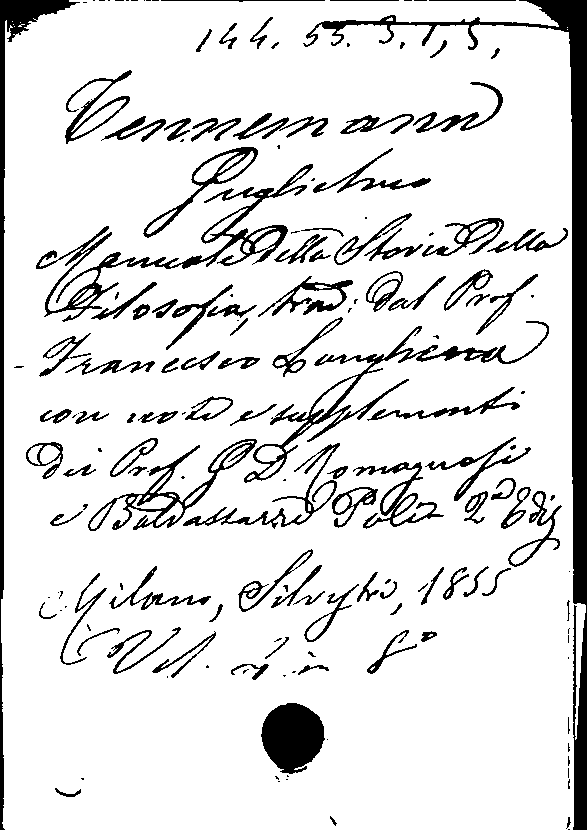 144. 55. 3. 1, 3,
Tennemann
Guglielmo
Manuale della Storia della
Filosofia, trad: dal Prof.
Francesco Longhena
con note e supplementi
dei Prof. G D. Romagnosi
e Baldassarre Poli 2a Ediz
Milano, Silvestri, 1855
Vol. in 8°